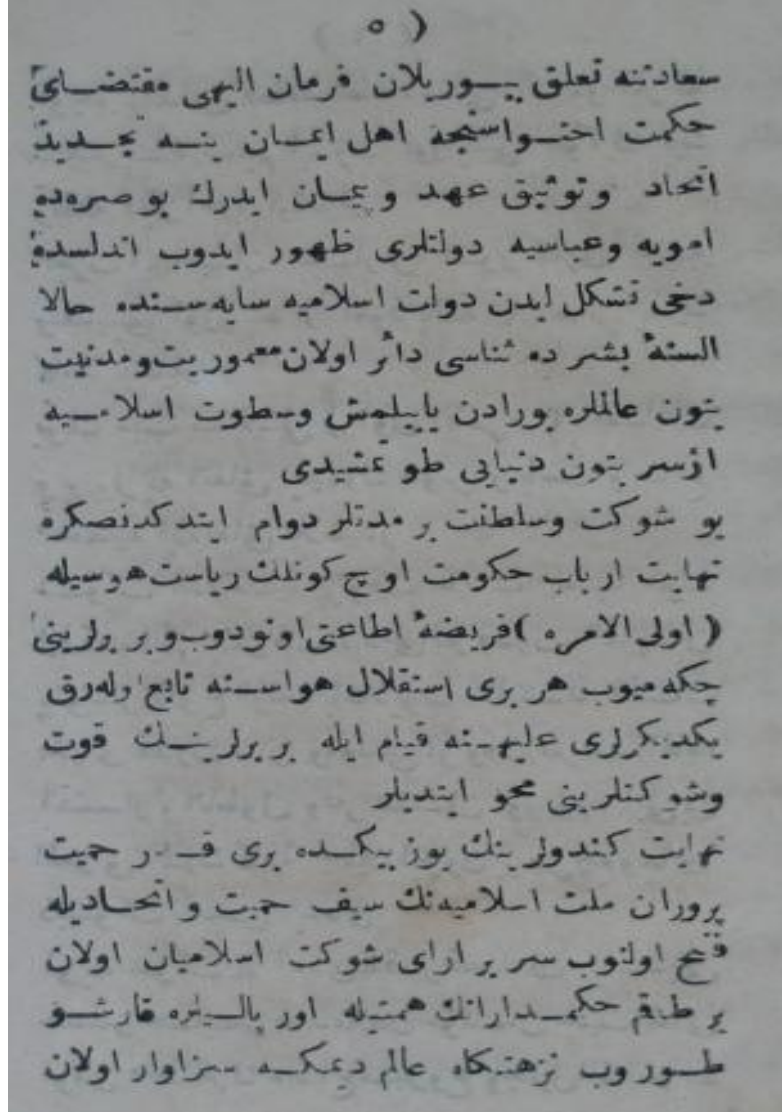 ( ٥
سعادتنه تعلق بيوريلان فرمان الهى مقتضاى
حكمت احتواسنجه اهل ايمان ينه تجديد
اتحاد وتوثيق عهد و يمان ايدرك بو صره ده
امويه وعباسيه دولتلرى ظهور ايدوب اندلسده
دخى تشكل ايدن دولت اسلاميه سايه سنده حالا
السنهٔ بشر ده ثناسى دائر اولان معموريت ومدنيت
بتون عالملره بورادن ياييلمش وسطوت اسلاميه
ازسر بتون دنيايى طو تمشيدى
بو شوكت وسلطنت بر مدتلر دوام ايتد كدنصكره
نهايت ارباب حكومت اوچ كونلك رياست هوسيله
( اولى الامره ) فريضهٔ اطاعتى اونودوب و بر برلرينى
چكه ميوب هر برى استقلال هواسنه تابع اوله رق
يكديكرلرى عليهنه قيام ايله بر برلرينك قوت
وشوكتلرينى محو ايتديلر
نهايت كندولرينك يوز بيكده برى قدر حميت
پروران ملت اسلاميه نك سيف حميت و اتحاديله
فتح اولنوب سرير اراى شوكت اسلاميان اولان
بر طاقم حكمدارانك همتيله اور پاليلره قارشو
طوروب نزهتكاه عالم ديمكه سزاوار اولان